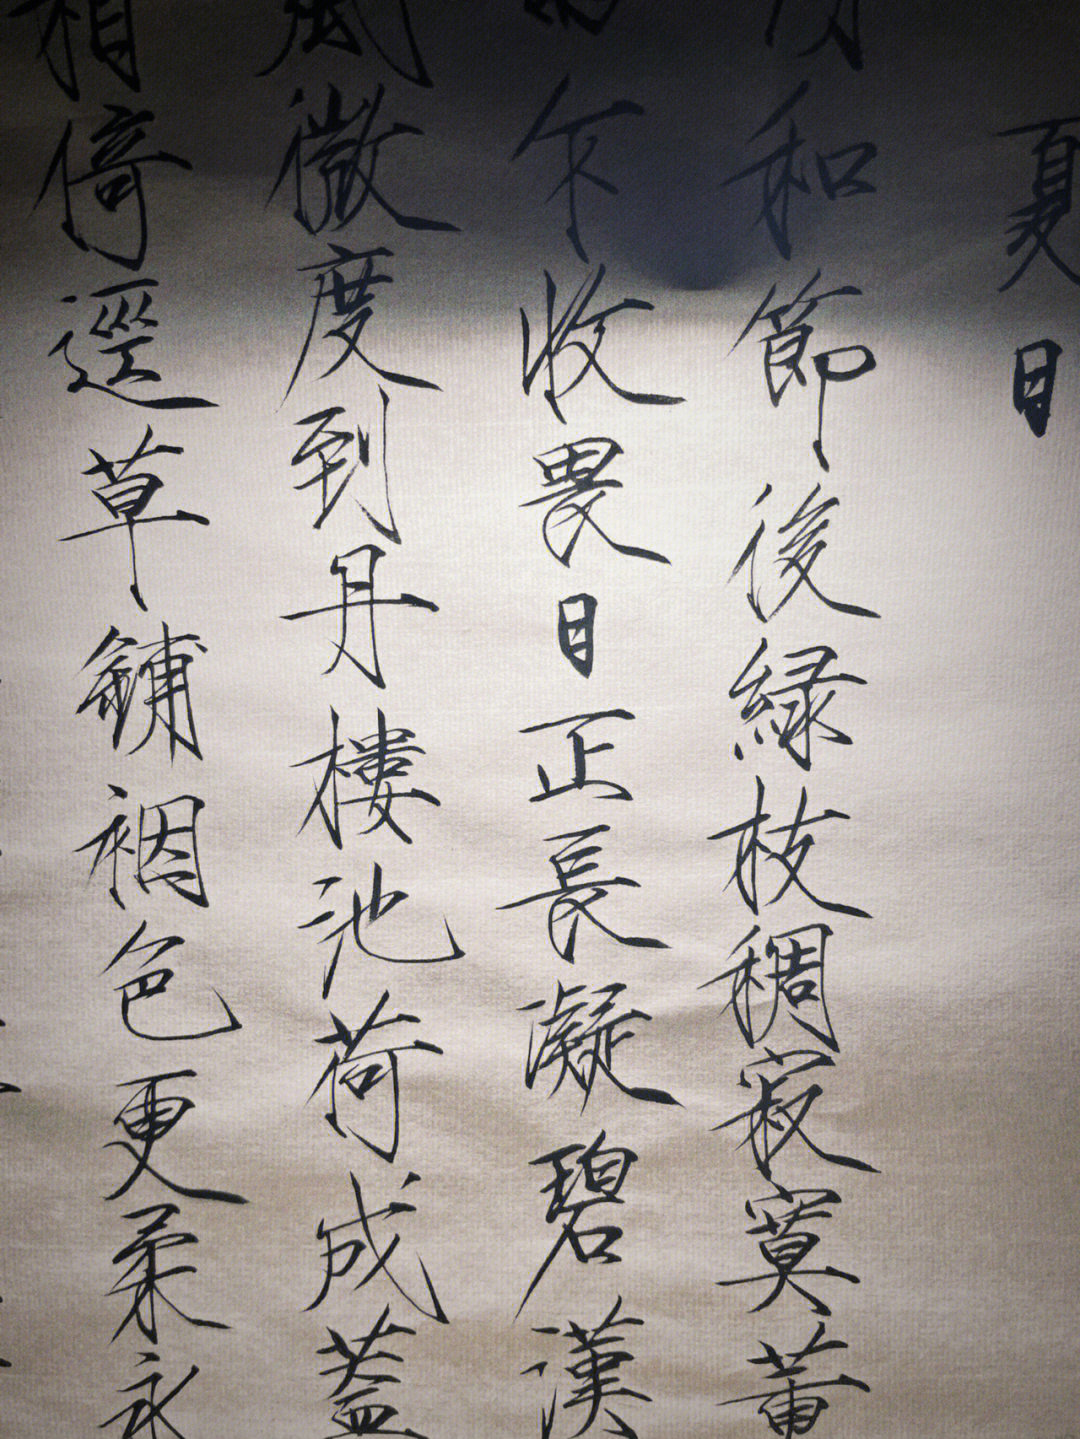 夏日
和節後綠枝稠寂寞黃
乍收畏日正長凝碧漢
風微度到丹樓池荷成蓋
相倚逕草鋪裀色更柔永